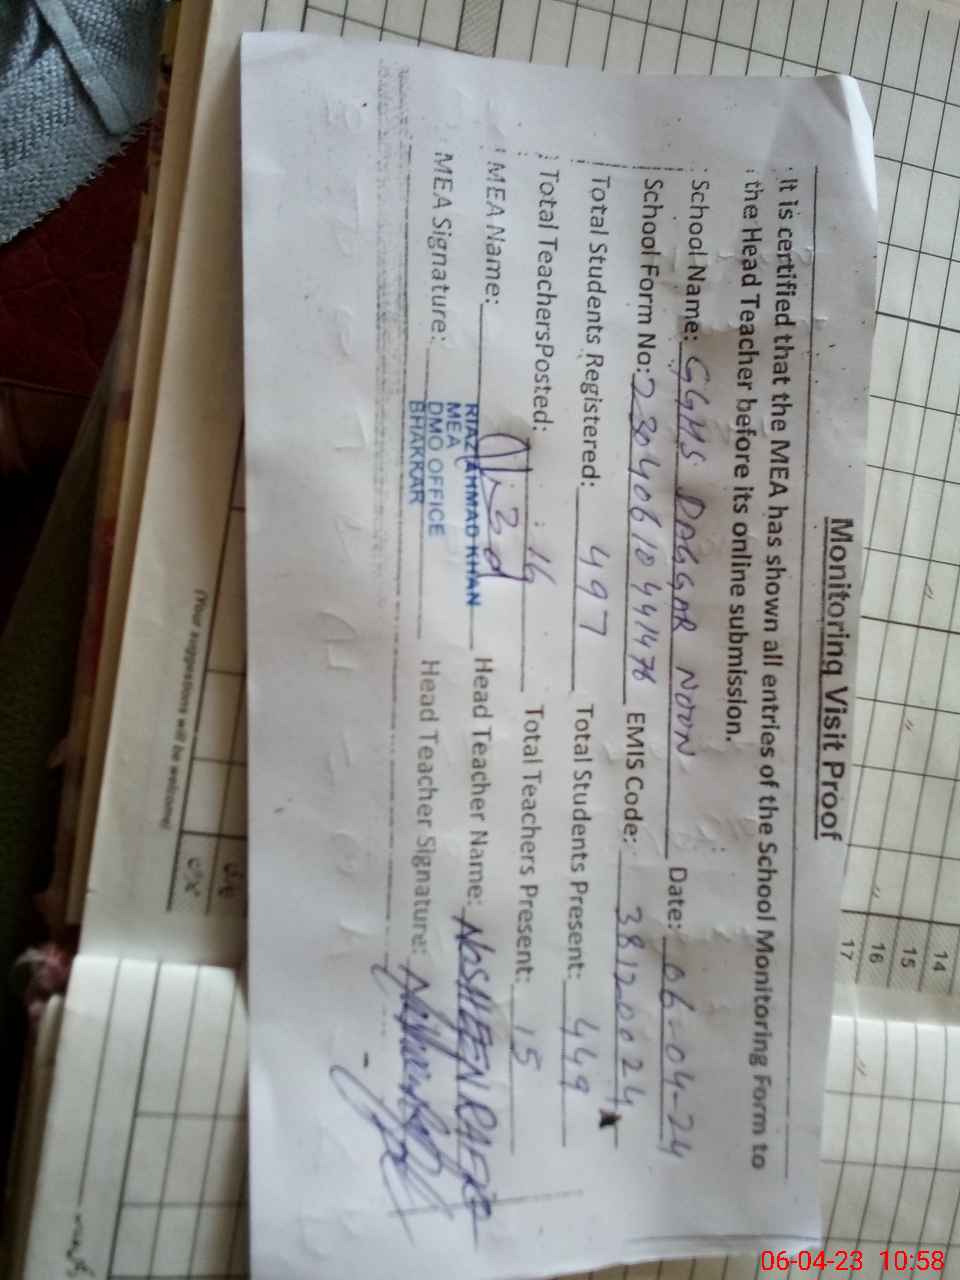 Monitoring Visit Proof
It is certified that the MEA has shown all entries of the School Monitoring Form to
the Head Teacher before its online submission.
School Name: GGMS DAGGAR NOON Date: 06-04-24
School Form No: EMIS Code: 38120024
Total Students Registered: 497 Total Students Present: 449
Total TeachersPosted: 16 Total Teachers Present: 15
MEA Name: Head Teacher Name: NOSHEEN
RIAZ AHMAD KHAN
MEA
DMO OFFICE
BHAKKAR
MEA Signature: Head Teacher Signature:
(Your suggestions will be welcome)
14
15
16
17
06-04-23 10:58